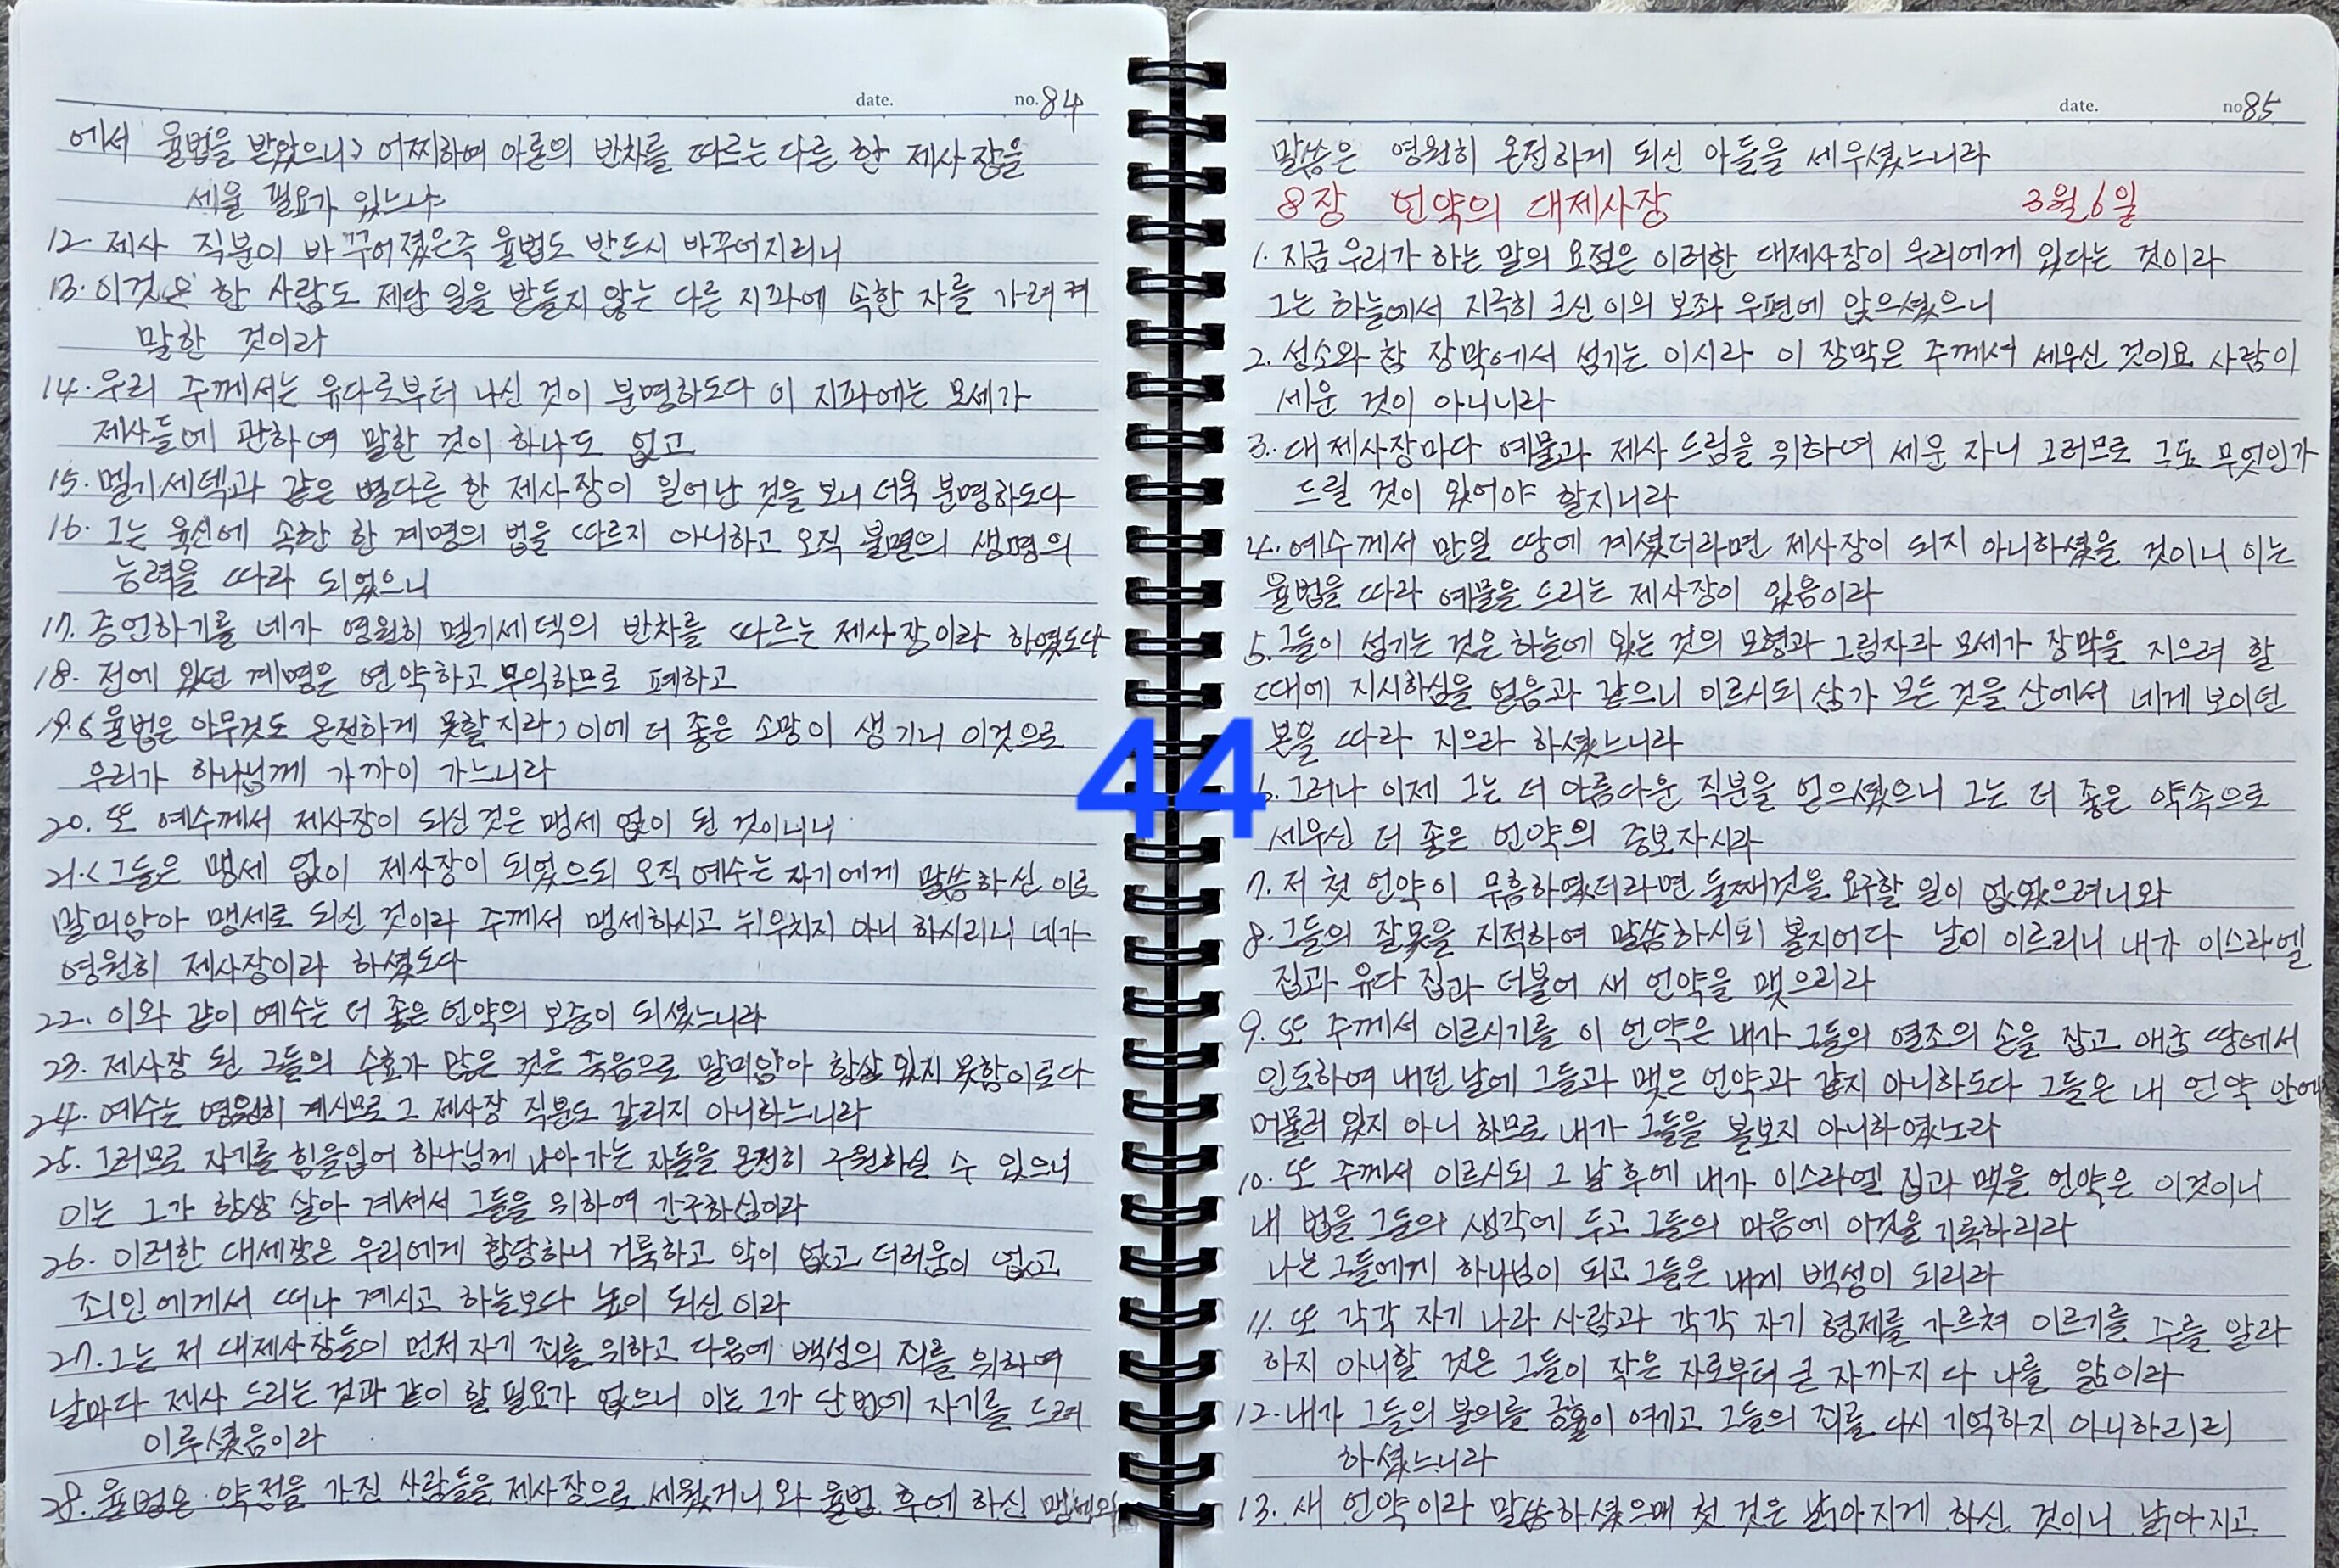 date. no. 84
에서 율법을 받았으니> 어찌하여 아론의 반차를 따르는 다른 한 제사장을
세울 필요가 있느냐
12. 제사 직분이 바꾸어졌은즉 율법도 반드시 바꾸어지리니
13. 이것은 한 사람도 제단 일을 받들지 않는 다른 지파에 속한 자를 가리켜
말한 것이라
14. 우리 주께서는 유다로부터 나신 것이 분명하도다 이 지파에는 모세가
제사들에 관하여 말한 것이 하나도 없고
15. 멜기세덱과 같은 별다른 한 제사장이 일어난 것을 보니 더욱 분명하도다
16. 그는 육신에 속한 한 계명의 법을 따르지 아니하고 오직 불멸의 생명의
능력을 따라 되었으니
17. 증언하기를 네가 영원히 멜기세덱의 반차를 따르는 제사장이라 하였도다
18. 전에 있던 계명은 연약하고 무익하므로 폐하고
19. <율법은 아무것도 온전하게 못할지라> 이에 더 좋은 소망이 생기니 이것으로
우리가 하나님께 가까이 가느니라
20. 또 예수께서 제사장이 되신 것은 맹세 없이 된 것이니니
21. <그들은 맹세 없이 제사장이 되었으되 오직 예수는 자기에게 말씀하신 이로
말미암아 맹세로 되신 것이라 주께서 맹세하시고 뉘우치지 아니 하시리니 네가
영원히 제사장이라 하셨도다
22. 이와 같이 예수는 더 좋은 언약의 보증이 되셨느니라
23. 제사장 된 그들의 수효가 많은 것은 죽음으로 말미암아 항상 있지 못함이로다
24. 예수는 영원히 계시므로 그 제사장 직분도 갈리지 아니하느니라
25. 그러므로 자기를 힘을입어 하나님께 나아가는 자들을 온전히 구원하실 수 있으니
이는 그가 항상 살아 계셔서 그들을 위하여 간구하심이라
26. 이러한 대세장은 우리에게 합당하니 거룩하고 악이 없고 더러움이 없고
죄인에게서 떠나 계시고 하늘보다 높이 되신 이라
27. 그는 저 대제사장들이 먼저 자기 죄를 위하고 다음에 백성의 죄를 위하여
날마다 제사 드리는 것과 같이 할 필요가 없으니 이는 그가 단번에 자기를 드려
이루셨음이라
28. 율법은 약점을 가진 사람들을 제사장으로 세웠거니와 율법 후에 하신 맹세의
date. no 85
말씀은 영원히 온전하게 되신 아들을 세우셨느니라
8장 언약의 대제사장 3월 6일
1. 지금 우리가 하는 말의 요점은 이러한 대제사장이 우리에게 있다는 것이라
그는 하늘에서 지극히 크신 이의 보좌 우편에 앉으셨으니
2. 성소와 참 장막에서 섬기는 이시라 이 장막은 주께서 세우신 것이요 사람이
세운 것이 아니니라
3. 대제사장마다 예물과 제사 드림을 위하여 세운 자니 그러므로 그도 무엇인가
드릴 것이 있어야 할지니라
4. 예수께서 만일 땅에 계셨더라면 제사장이 되지 아니하셨을 것이니 이는
율법을 따라 예물을 드리는 제사장이 있음이라
5. 그들이 섬기는 것은 하늘에 있는 것의 모형과 그림자라 모세가 장막을 지으려 할
때에 지시하심을 얻음과 같으니 이르시되 삼가 모든 것을 산에서 네게 보이던
본을 따라 지으라 하셨느니라
44
6. 그러나 이제 그는 더 아름다운 직분을 얻으셨으니 그는 더 좋은 약속으로
세우신 더 좋은 언약의 중보자시라
7. 저 첫 언약이 무흠하였더라면 둘째것을 요구할 일이 없었으려니와
8. 그들의 잘못을 지적하여 말씀하시되 볼지어다 날이 이르리니 내가 이스라엘
집과 유다 집과 더불어 새 언약을 맺으리라
9. 또 주께서 이르시기를 이 언약은 내가 그들의 열조의 손을 잡고 애굽 땅에서
인도하여 내던 날에 그들과 맺은 언약과 같지 아니하도다 그들은 내 언약 안에
머물러 있지 아니 하므로 내가 그들을 돌보지 아니하였노라
10. 또 주께서 이르시되 그 날 후에 내가 이스라엘 집과 맺을 언약은 이것이니
내 법을 그들의 생각에 두고 그들의 마음에 이것을 기록하리라
나는 그들에게 하나님이 되고 그들은 내게 백성이 되리라
11. 또 각각 자기 나라 사람과 각각 자기 형제를 가르쳐 이르기를 주를 알라
하지 아니할 것은 그들이 작은 자로부터 큰 자까지 다 나를 앎이라
12. 내가 그들의 불의를 긍휼이 여기고 그들의 죄를 다시 기억하지 아니하리리
하셨느니라
13. 새 언약이라 말씀하셨으매 첫 것은 낡아지게 하신 것이니 낡아지고